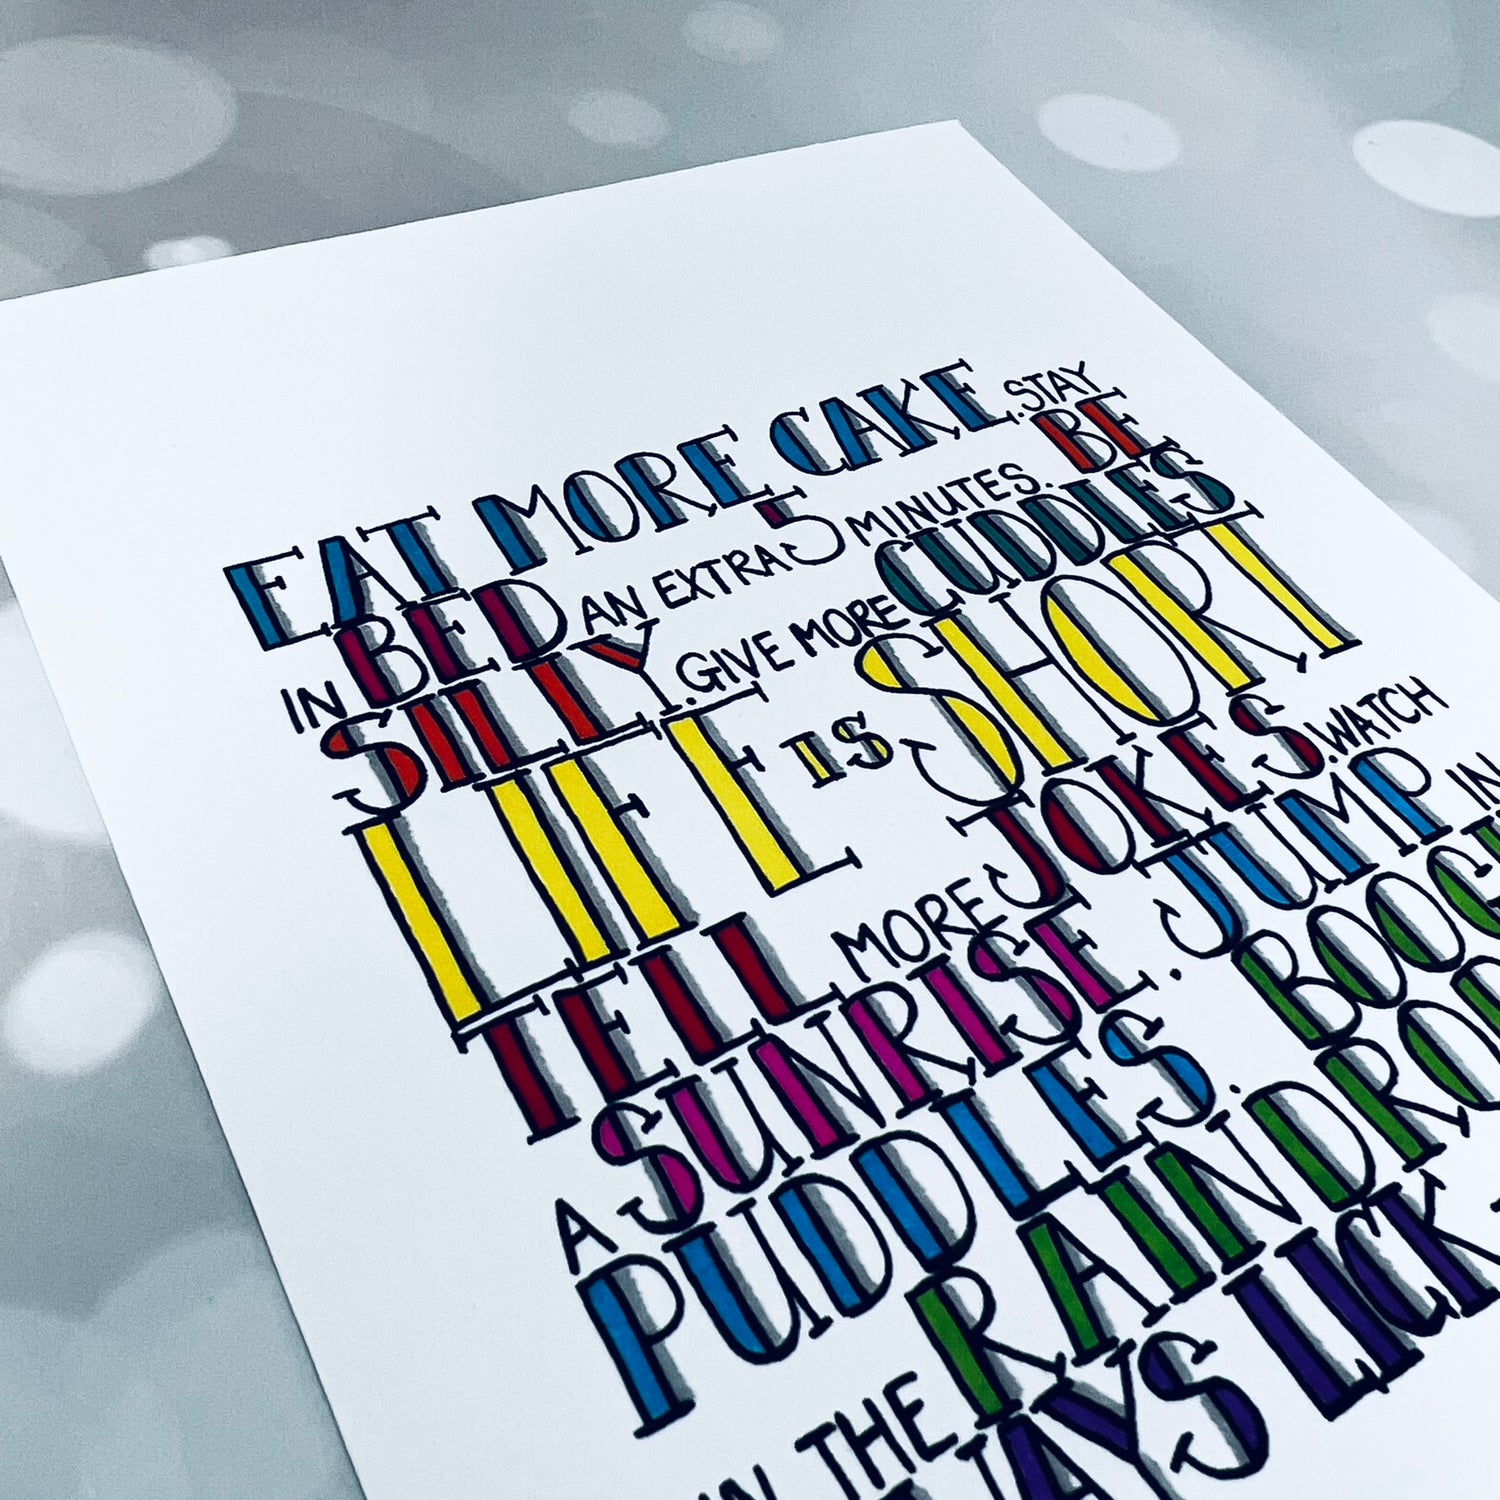 EAT MORE CAKE. STAY
IN BED AN EXTRA 5 MINUTES. BE
SILLY. GIVE MORE CUDDLES
LIFE IS SHORT
TELL MORE JOKES. WATCH
A SUNRISE. JUMP IN
PUDDLES. BOOGI
IN THE RAINDRO
AYS LICK